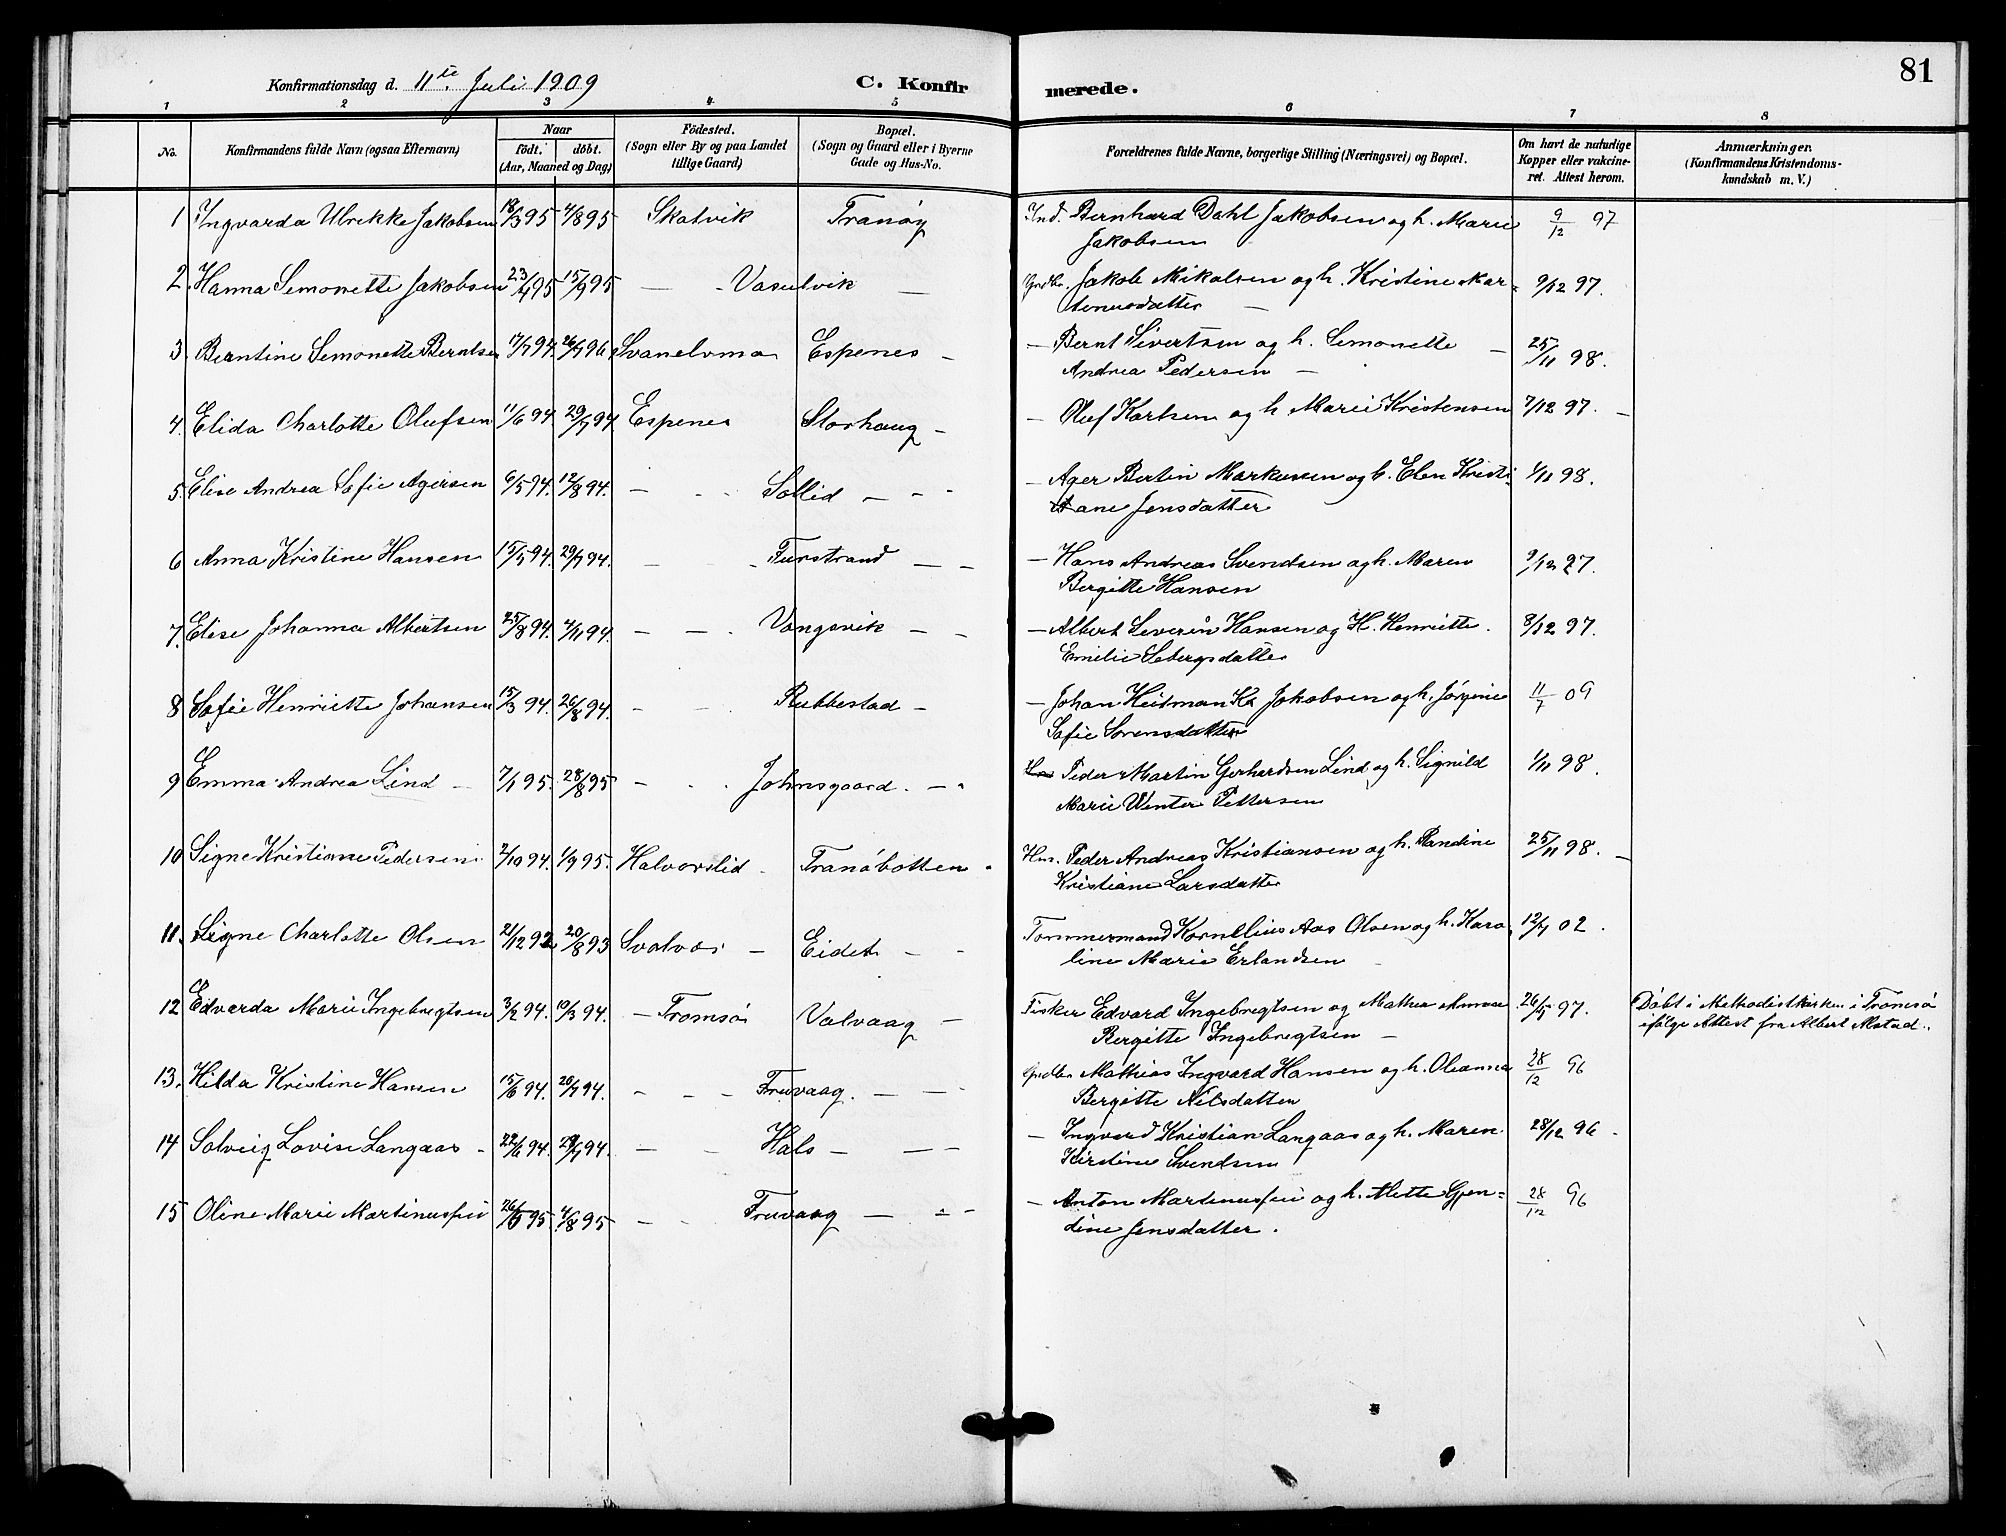 81
Konfirmationsdag d. 11te Juli 1909 C. Konfirmerede.
1 2 3 4 5 6 7 8
No. Konfirmandens fulde Navn (ogsaa Efternavn) Naar födt. döbt. (Aar, Maaned og Dag) Födested. (Sogn eller By og paa Landet tillige Gaard) Bopæl. (Sogn og Gaard eller i Byerne Gade og Hus-No. Forældrenes fulde Navne, borgerlige Stilling (Næringsvei) og Bopæl. Om havt de naturlige Kopper eller vakcineret. Attest herom. Anmærkninger. (Konfirmandens Kristendomskundskab m. V.)
1 Ingvarda Ulrikke Jakobsen 18/3 95 4/8 95 Skatvik Tranöy Ind. Bernhard Dahl Jakobsen og h. Marie 9/12 97
Jakobsen
2. Hanna Semonette Jakobsen 23/4 95 15/9 95 — - Vasulvik — Grdbr. Jakob Mikalsen og h. Kristine Mar= 9/12 97.
tenusdatter —
3. Berntine Semonette Berntsen 17/7 94. 26/7 96 Svanelvmo Espenes - — Bernt Sivertsen og h. Semonette — 25/11 98.
Andrea Pedersen —
4. Elida Charlotte Olufsen 11/6 94. 29/7 94 Espenes Storhaug - — Oluf Karlsen og h Marie Kristensen 7/12 97. —
5. Elise Andrea Sofie Agersen 6/5 94. 12/8 94. - - - Sollid — - - — Ager Bertin Markussen og h. Elen Kristi- 1/11 98.
ane Jensdatter
6 Anna Kristine Hansen 15/5 94. 29/7 94. - - - Furstrand — - — Hans Andreas Svendsen og h. Maren 9/12 97.
Bergitte Hansen
7. Elise Johanna Albertsen 25/8 94. 4/11 94. - - - Vangsvik - - — Albert Severin Hansen og H. Henriette. 8/12 97.
Emilie Sebergsdatter
8 Sofie Henriette Johansen 15/3 94. 26/8 94. - - Rubbestad - — Johan Heitman Jakobsen og h. Jörgine 11/7 09
Sofie Sorensdatter
9 Emma Andrea Lind - 7/1 95. 28/8 95 - - - Johnsgaard. - - Peder Martin Gerhardsen Lind og h. Signild 1/11 98.
Marie Winter Pettersen
10 Signe Kristiane Pedersen 2/10 94. 1/9 95. Halvorslid. Tranöbotten - Hm. Peder Andreas Kristiansen og h. Randine 25/11 98. —
Kristiane Larsdatter
11. Signe Charlotte Olsen 21/12 92 20/8 93 Svolvær - Eidet - - Tommermand Kornelius Aas Olsen og h. Karo- 12/7 02.
line Marie Erlandsen -
12 Edvarda Marie Ingebregtsen 3/2 94. 10/3 94. - Tromsö Valvaag - Fisker Edvard Ingebregtsen og Anna 26/5 97. Döbt i Methodistkirken i Tromsö
Bergitte Ingebregtsen — ifölge Attest fra Albert
13. Hilda Kristine Hansen 15/6 94. 20/7 94. - - - Fruvaag. - - Grdbr Mathias Ingvard Hansen og h. Oleanna 28/12 96
Bergitte Nilsdatter
14 Solveig Lovise Langaas - 22/6 94. 29/7 94. - - Hals - - - — Ingvard Kristian Langaas og h. Maren 28/12 96.
Kirstine Svendsen
15 Oline Marie Martinussen 26/5 95. 4/8 95 - - Fruvaag — - - — Anton Martinussen og h. Mette Gjen= 28/12 96
dine Jensdatter.